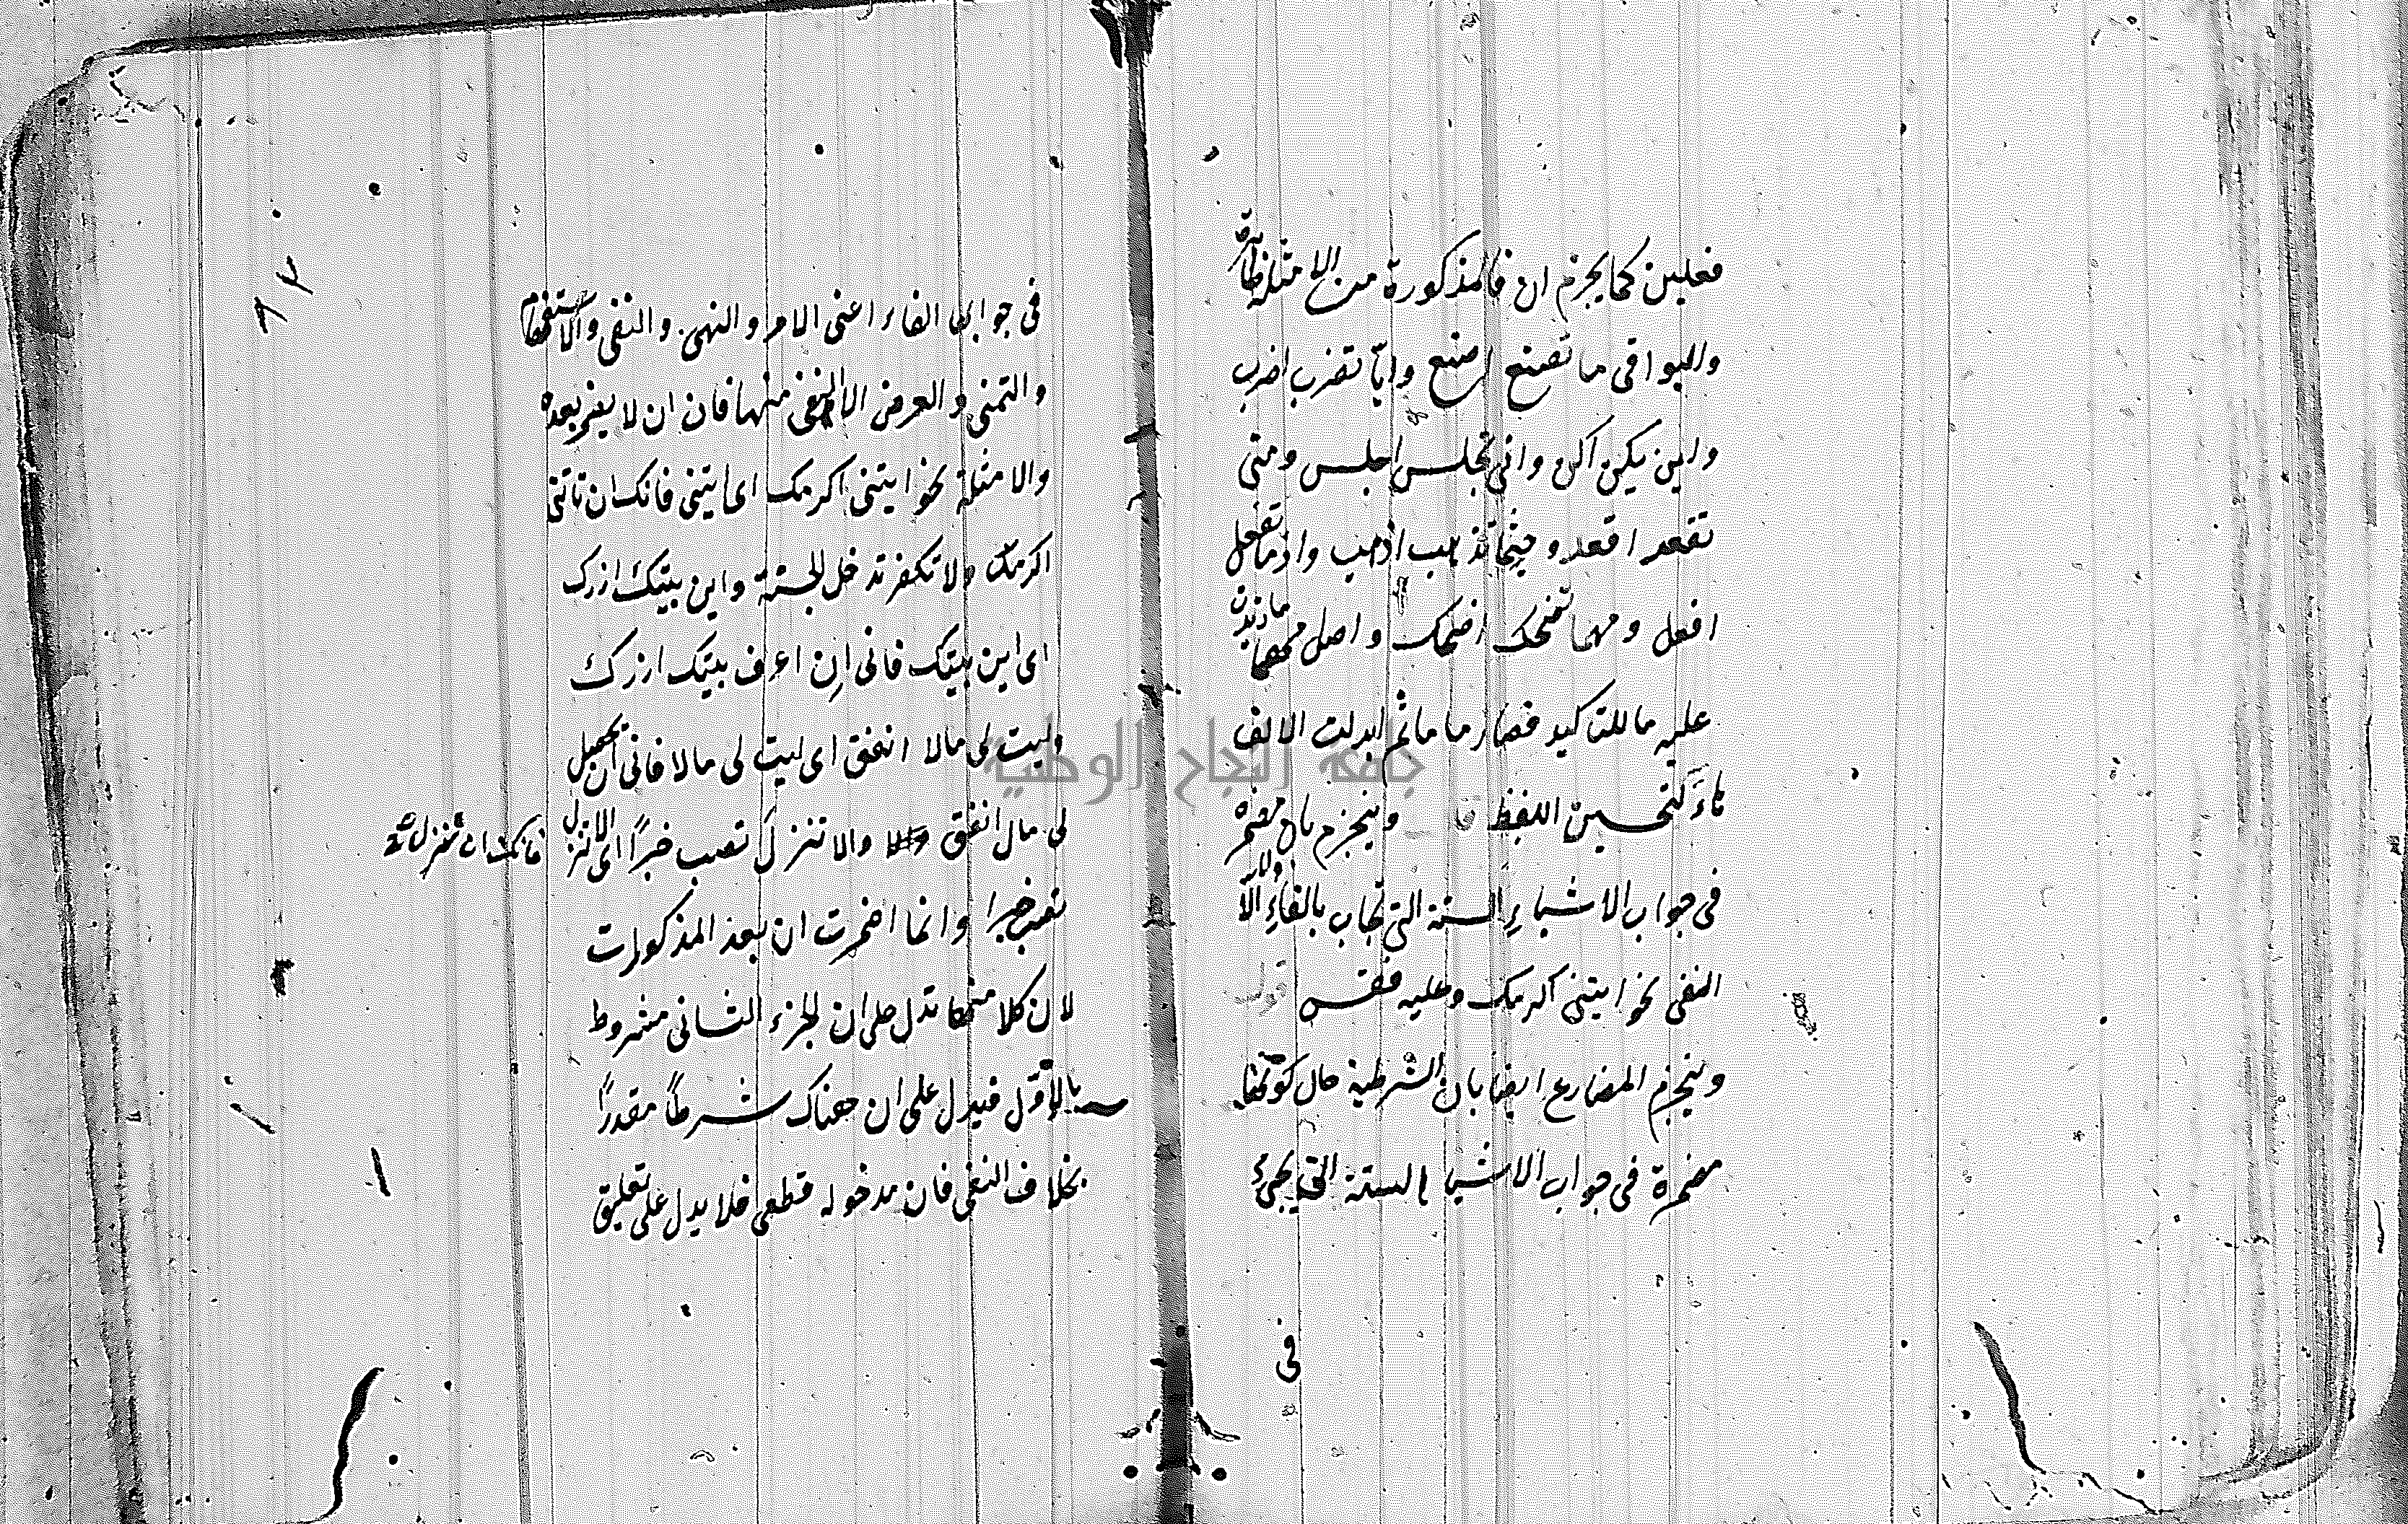 فعلين كما يجزم ان فالمذكورة من الامثلة ظاهرة
والبواقى ما تصنع اصنع وايّا تضرب اضرب
واين يكن اكن وانى تجلس اجلس ومتى
تقعد اقعد وحيثما تذهب اذهب واذما تفعل
افعل ومهما تضحك اضحك واصل مهما ما زيدت
عليه ما للتاكيد فصار ما ما ثم ابدلت الالف
هاءً لتحسين اللفظ وينجزم بان مضمرة
فى جواب الاشياء الستة التى تجاب بالفاء الّا
النفى نحو ايتنى اكرمك وعليه فقس
وينجزم المضارع ايضا بان الشرطية حال كونها
مضمرة فى جواب الاشياء الستة التى يجىء
فى
٨٣
فى جوابها الفاء اعنى الامر والنهى والنفى والاستفهام
والتمنى والعرض الا النفى منها فان ان لا يضمر بعده
والامثلة نحو ايتنى اكرمك اى ايتنى فانك ان تاتنى
اكرمك ولا تكفر تدخل الجنة واين بيتك ازرك
اى اين بيتك فانى اِن اعرف بيتك ازرك
وليت لى مالا انفق اى ليت لى مالا فانى ان يحصل
لى مال انفق والا تنزل تصب خيرًا اى الا تنزل فانك ان تنزل
تصب خيرا وانما اضمرت ان بعد المذكورات
لان كلا منها تدل على ان الجزء الثانى مشروط
بالاوّل فيدل على ان هناك شرطاً مقدرًا
بخلاف النفى فان مدخوله قطعى فلا يدل على تعليق
جامعة النجاح الوطنية